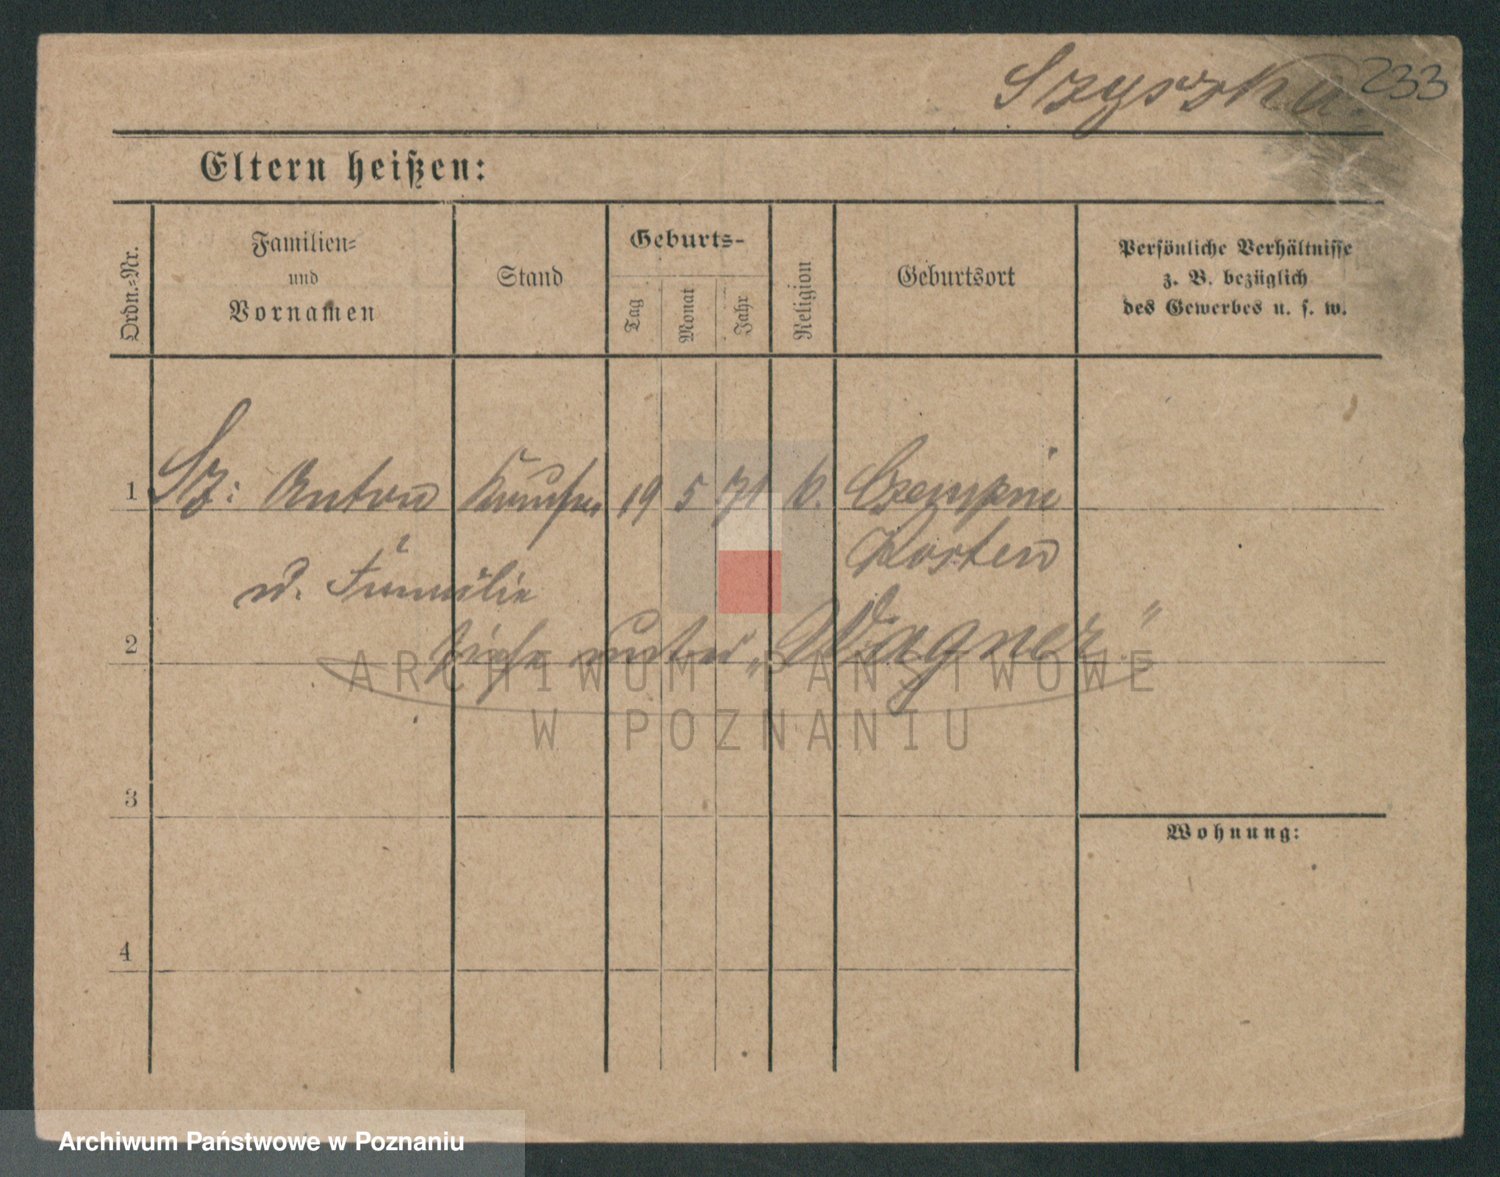 Szyszka. 233
Eltern heißen:
Ordn.=Nr.
Familien=
und
Vornamen
Stand
Geburts=
Tag
Monat
Jahr
Religion
Geburtsort
Persönliche Verhältnisse
z. B. bezüglich
des Gewerbes u. s. w.
1 Sz: Anton 19 5 71 k. Czempin
Kosten
u. Familie
2 siehe unter „Wagner"
ARCHIWUM PAŃSTWOWE
W POZNANIU
3
Wohnung:
4
Archiwum Państwowe w Poznaniu